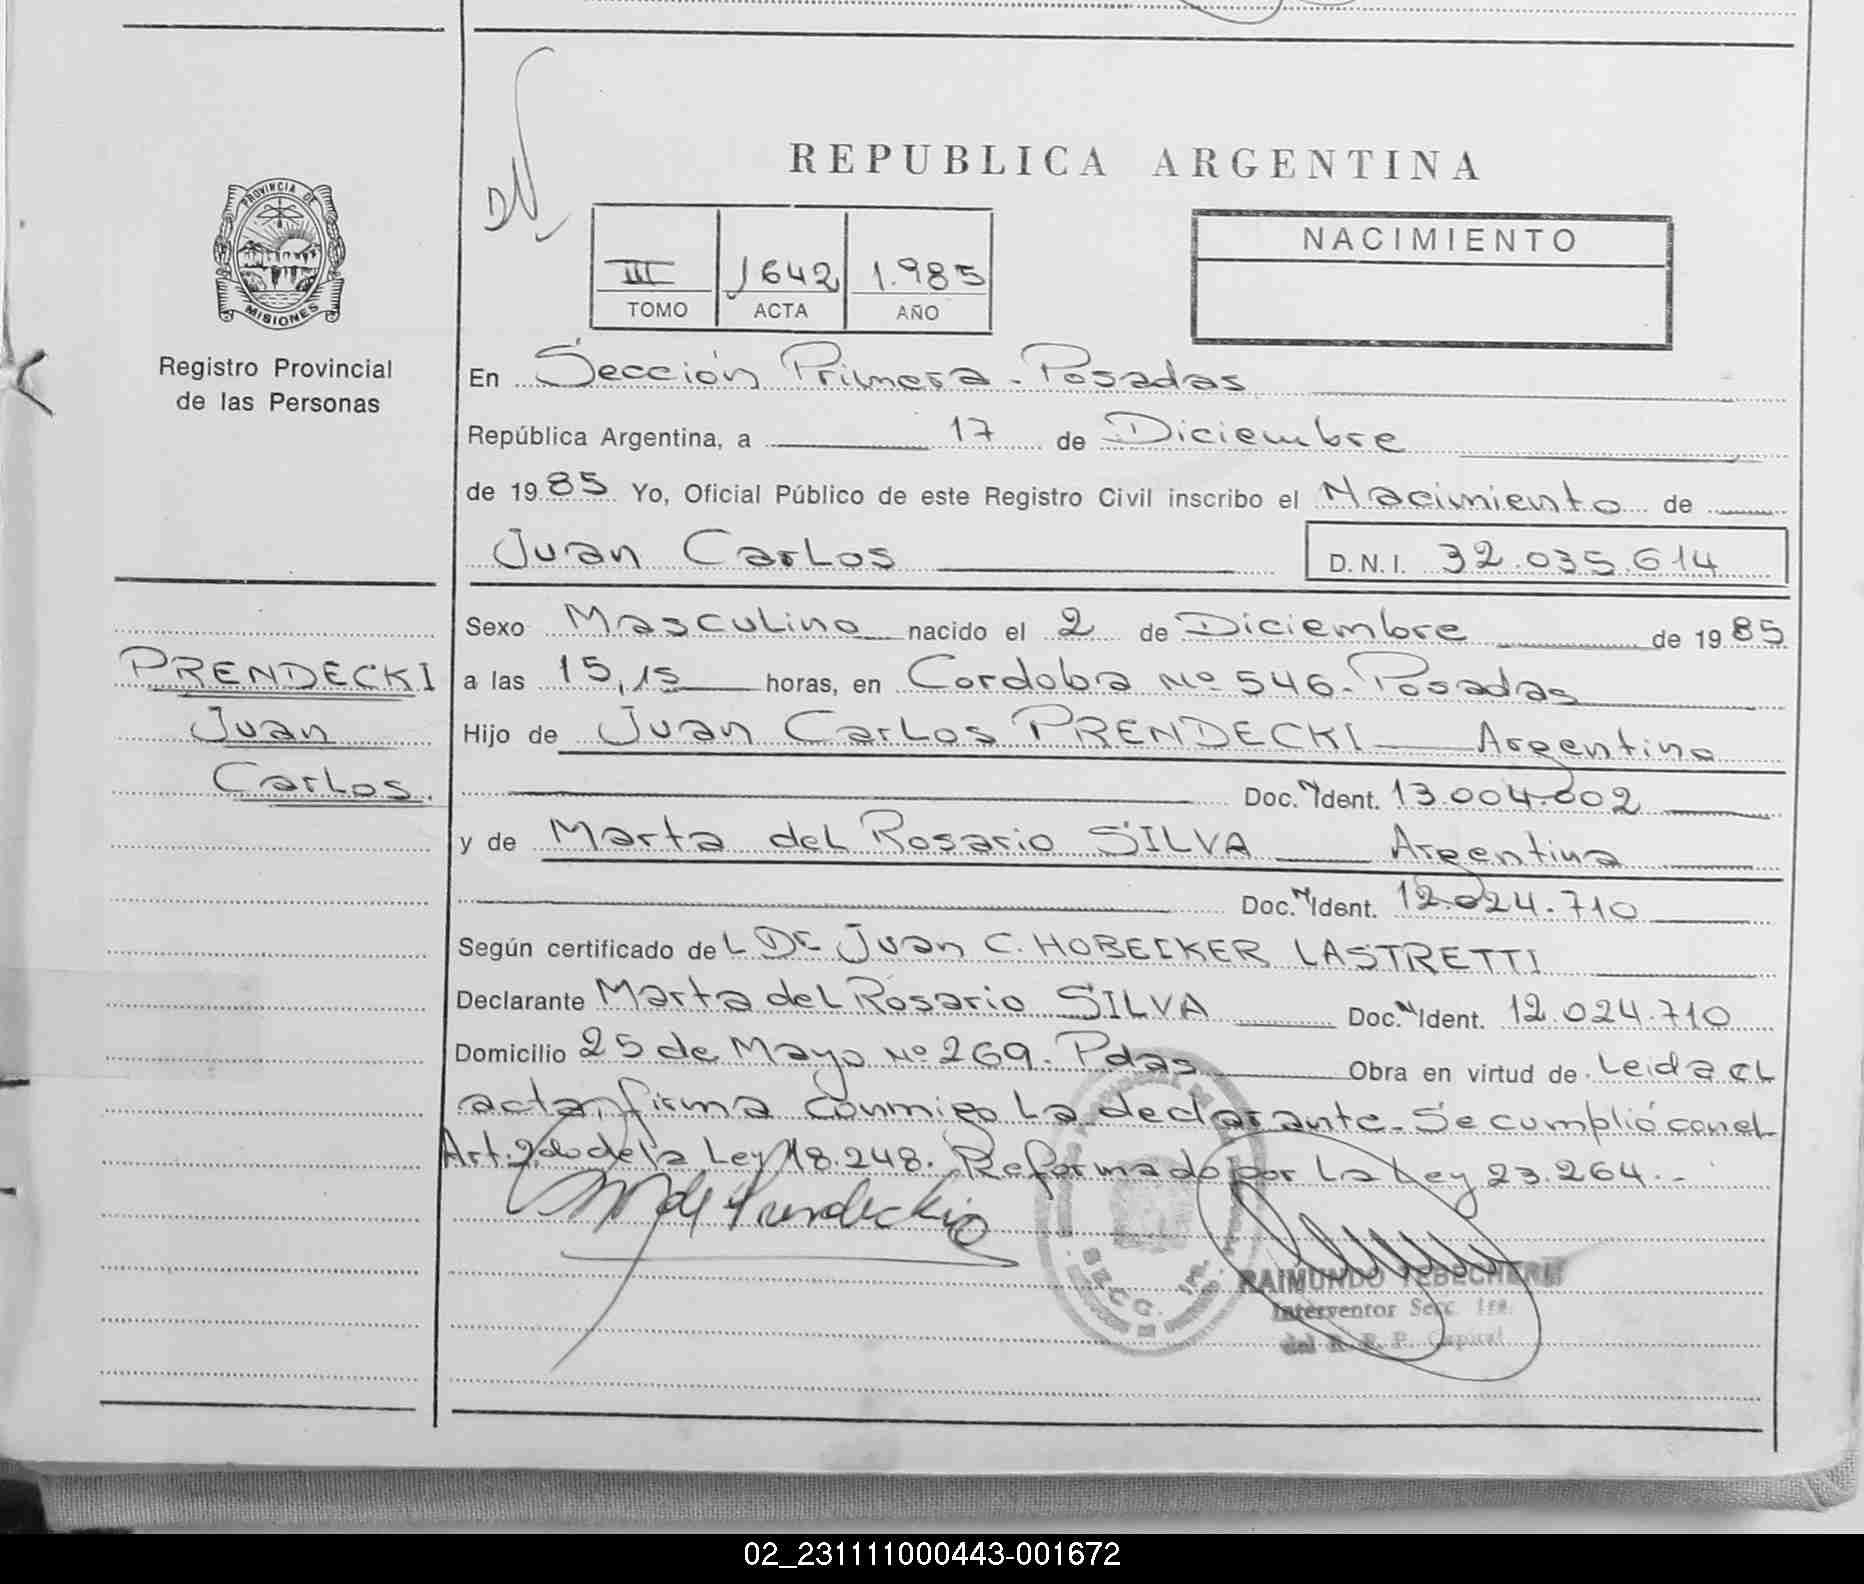 REPUBLICA ARGENTINA
PROVINCIA DE
MISIONES
Registro Provincial
de las Personas
III 1642 1.985
TOMO ACTA AÑO
NACIMIENTO
En Sección Primera - Posadas
República Argentina, a 17 de Diciembre
de 1985 Yo, Oficial Público de este Registro Civil inscribo el Nacimiento de
Juan Carlos D.N.I. 32.035.614
PRENDECKI
Juan
Carlos.
Sexo Masculino nacido el 2 de Diciembre de 1985
a las 15,15 horas, en Cordoba Nº 546 - Posadas
Hijo de Juan Carlos PRENDECKI Argentino
Doc. N Ident. 13.004.002
y de Marta del Rosario SILVA Argentina
Doc. N Ident. 12.024.710
Según certificado del Dr Juan C. HOBECKER LASTRETTI
Declarante Marta del Rosario SILVA Doc. N Ident. 12.024.710
Domicilio 25 de Mayo Nº 269 - Pdas Obra en virtud de Leida el
acta, firma conmigo la declarante - Se cumplió con el
Art. 2do de la Ley 18.248. Reformado por la Ley 23.264.-
RAIMUNDO TEBECHERI
Interventor Secc. 1ra.
del R. R. P. Capital
SECC. 1ra.
02_231111000443-001672